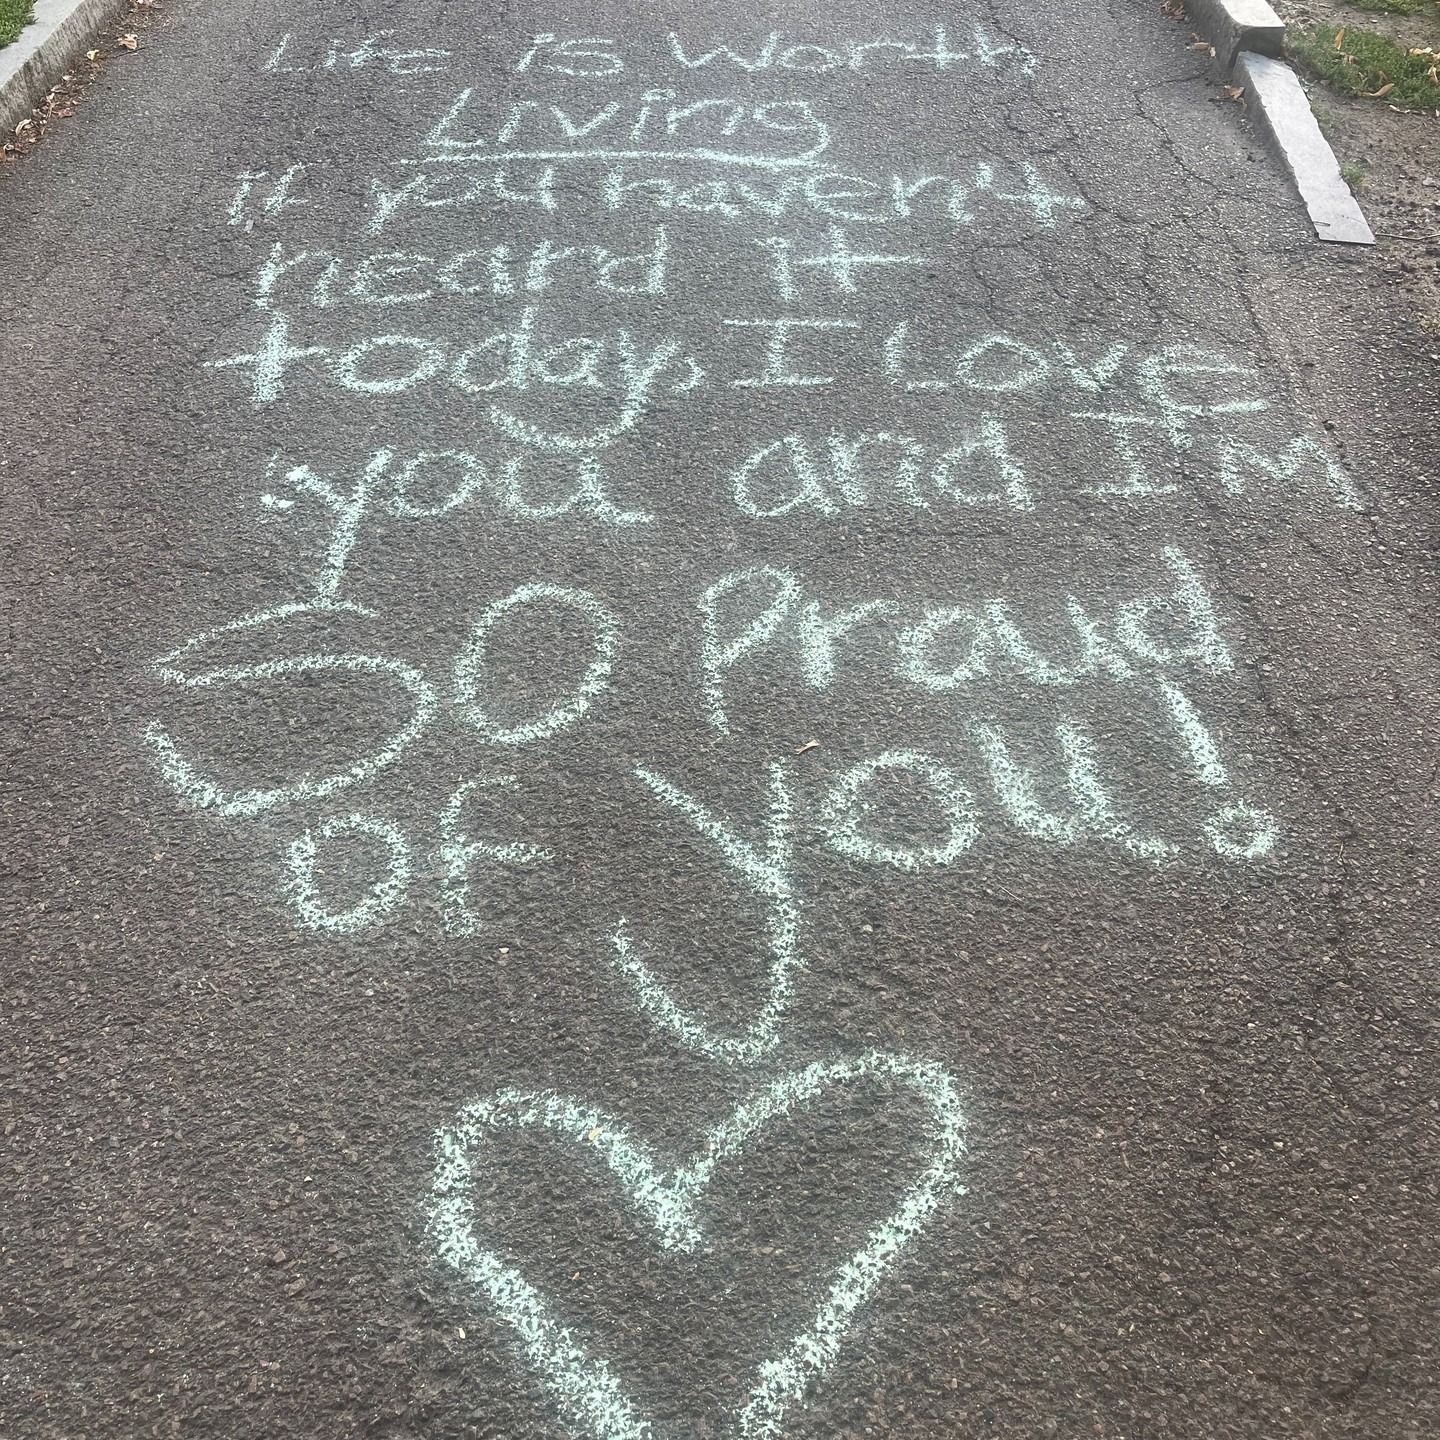 Life is Worth
Living
if you haven't
heard it
today, I Love
you and I'm
So Proud
of you!